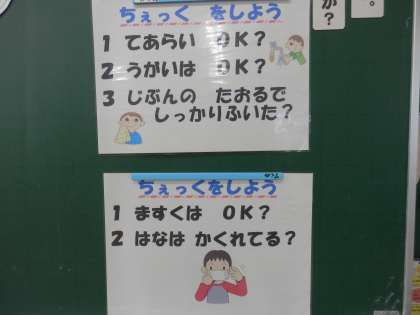 ちぇっく をしよう
1 てあらい OK？
2 うがいは OK？
3 じぶんの たおるで
しっかりふいた？
か？
。
ちぇっくをしよう
1 ますくは OK？
2 はなは かくれてる？